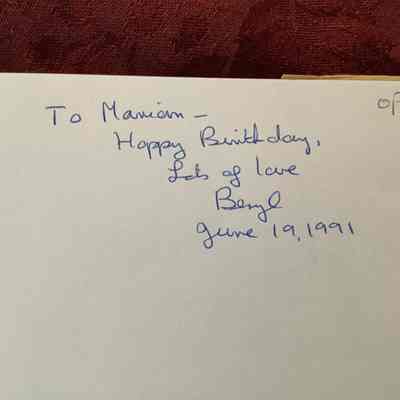 To Marriam -
Happy Birthday,
Lots of love
Beryl
June 19, 1991